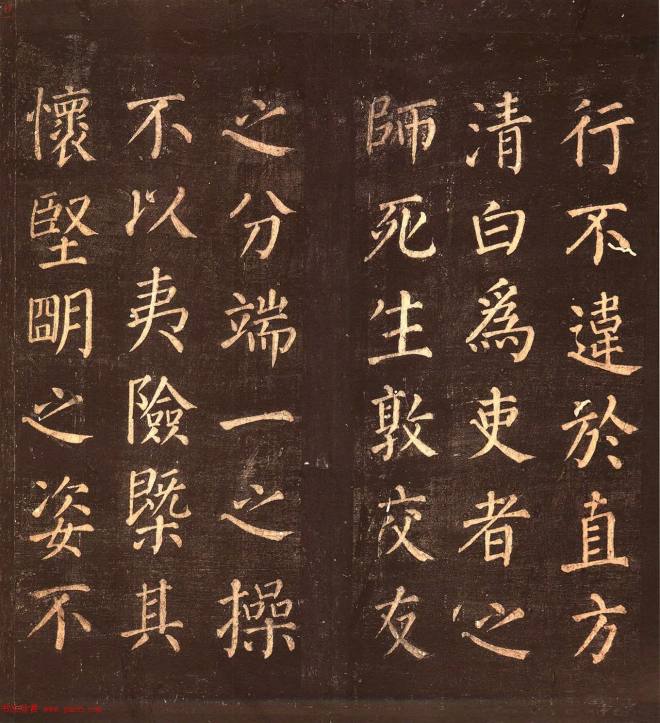 行不違於直方
清白為吏者之
師死生敦交友
之分端一之操
不以夷險槩其
懷堅朙之姿不